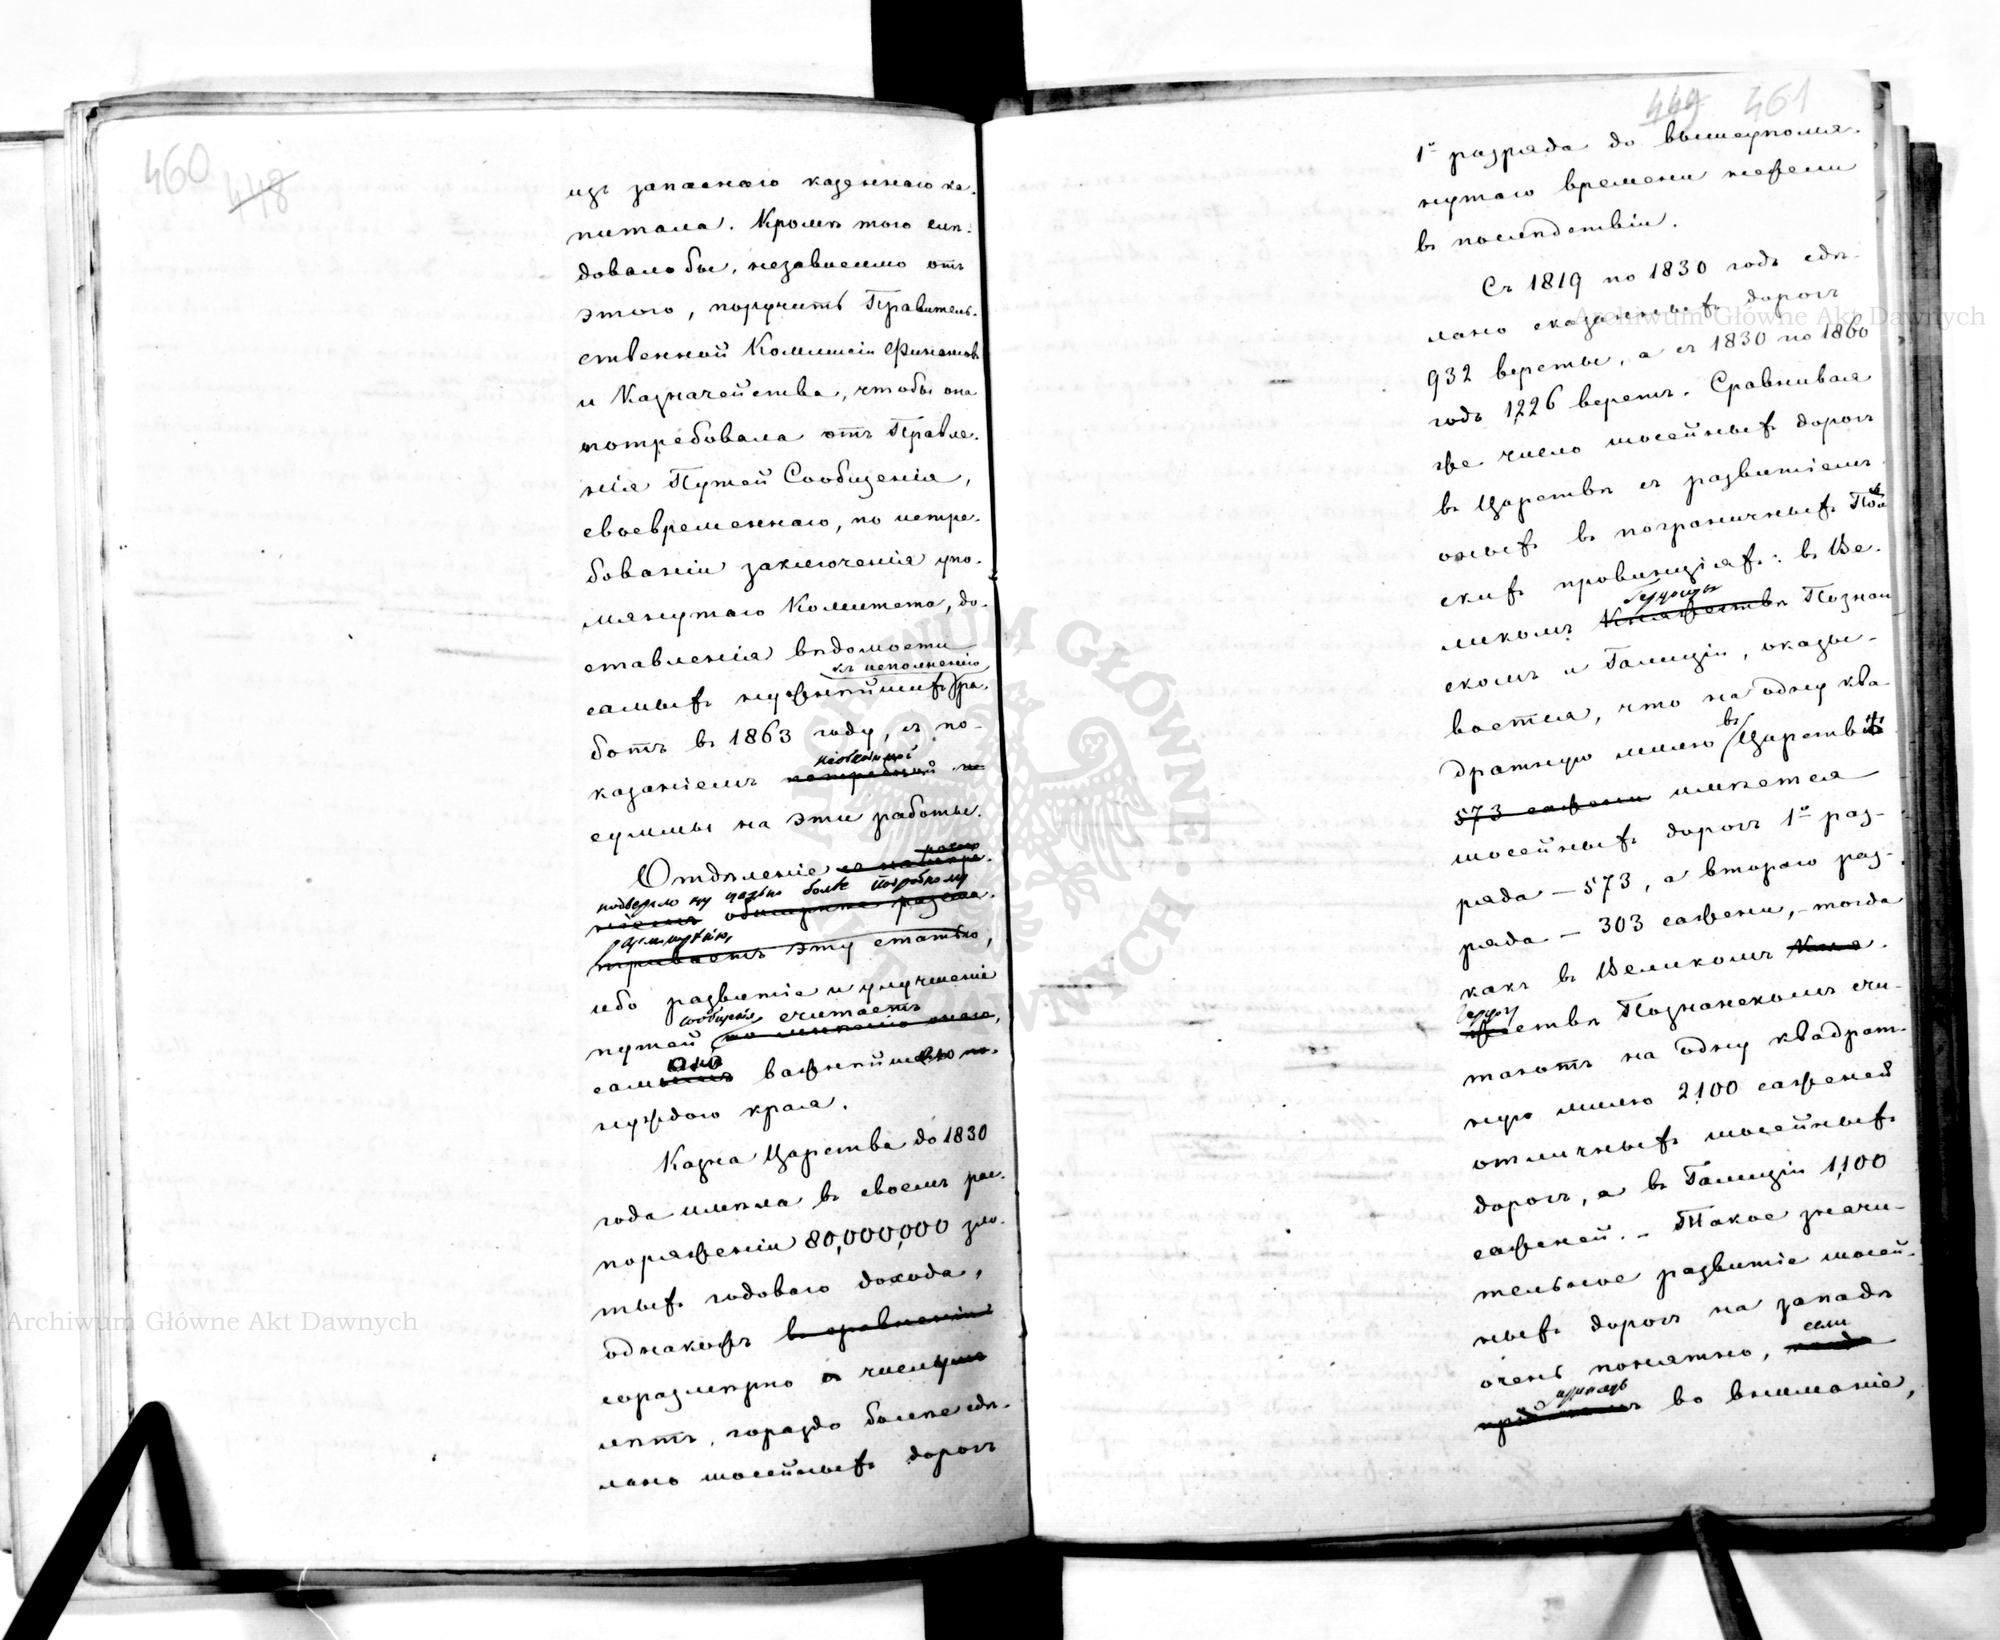 460
448
изъ запаснаго казеннаго ка-
питала. Кромѣ того слѣ-
довало бы, независимо отъ
этого, поручить Правитель-
ственной Коммисіи Финансовъ
и Казначейства, чтобы она
потребовала отъ Правле-
нія Путей Сообщенія,
своевременнаго, по истре-
бованіи заключенія упо-
мянутаго Комитета, до-
ставленія вѣдомости
къ исполненію
самыхъ нужнѣйшихъ ра-
ботъ въ 1863 году, съ по-
необходимой
казаніемъ потребной
суммы на эти работы.
Отдѣленіе
подвергло
болѣе подробному
разсмотрѣнію,
эту статью,
ибо развитіе и улучшеніе
сообщенія считаетъ
путей
оно
самою важнѣйшею по-
нуждою края.
Казна Царства до 1830
года имѣла въ своемъ рас-
поряженіи 80,000,000 зло-
тыхъ годоваго дохода,
однакожъ въ сравненіи
соразмѣрно числу
лѣтъ, гораздо болѣе сдѣ-
лано шосейныхъ дорогъ
449 461
1го разряда до вышеупомя-
нутаго времени нежели
въ послѣдствіи.
Съ 1819 по 1830 годъ сдѣ-
лано сказанныхъ дорогъ
932 версты, а съ 1830 по 1860
годъ 1,226 верстъ. Сравнивая
же число шосейныхъ дорогъ
въ Царствѣ съ развитіемъ
оныхъ въ пограничныхъ Поль
скихъ провинціяхъ: въ Ве-
герцогствѣ
ликомъ Княжествѣ Познан
скомъ и Галиціи, оказы-
вается, что на одну ква
въ
дратную милю Царствѣ
573 сажени имѣется
шосейныхъ дорогъ 1го раз-
ряда — 573, а втораго раз-
ряда — 303 сажени, — тогда
какъ въ Великомъ Кня
Герцог
жествѣ Познанскомъ счи-
таютъ на одну квадрат-
ную милю 2,100 саженей
отличныхъ шосейныхъ
дорогъ, а въ Галиціи 1,100
саженей. — Такое значи-
тельное развитіе шосей-
ныхъ дорогъ на западѣ
если
очень понятно,
принять
во вниманіе,
Archiwum Główne Akt Dawnych
Archiwum Główne Akt Dawnych
ARCHIWUM GŁÓWNE AKT DAWNYCH